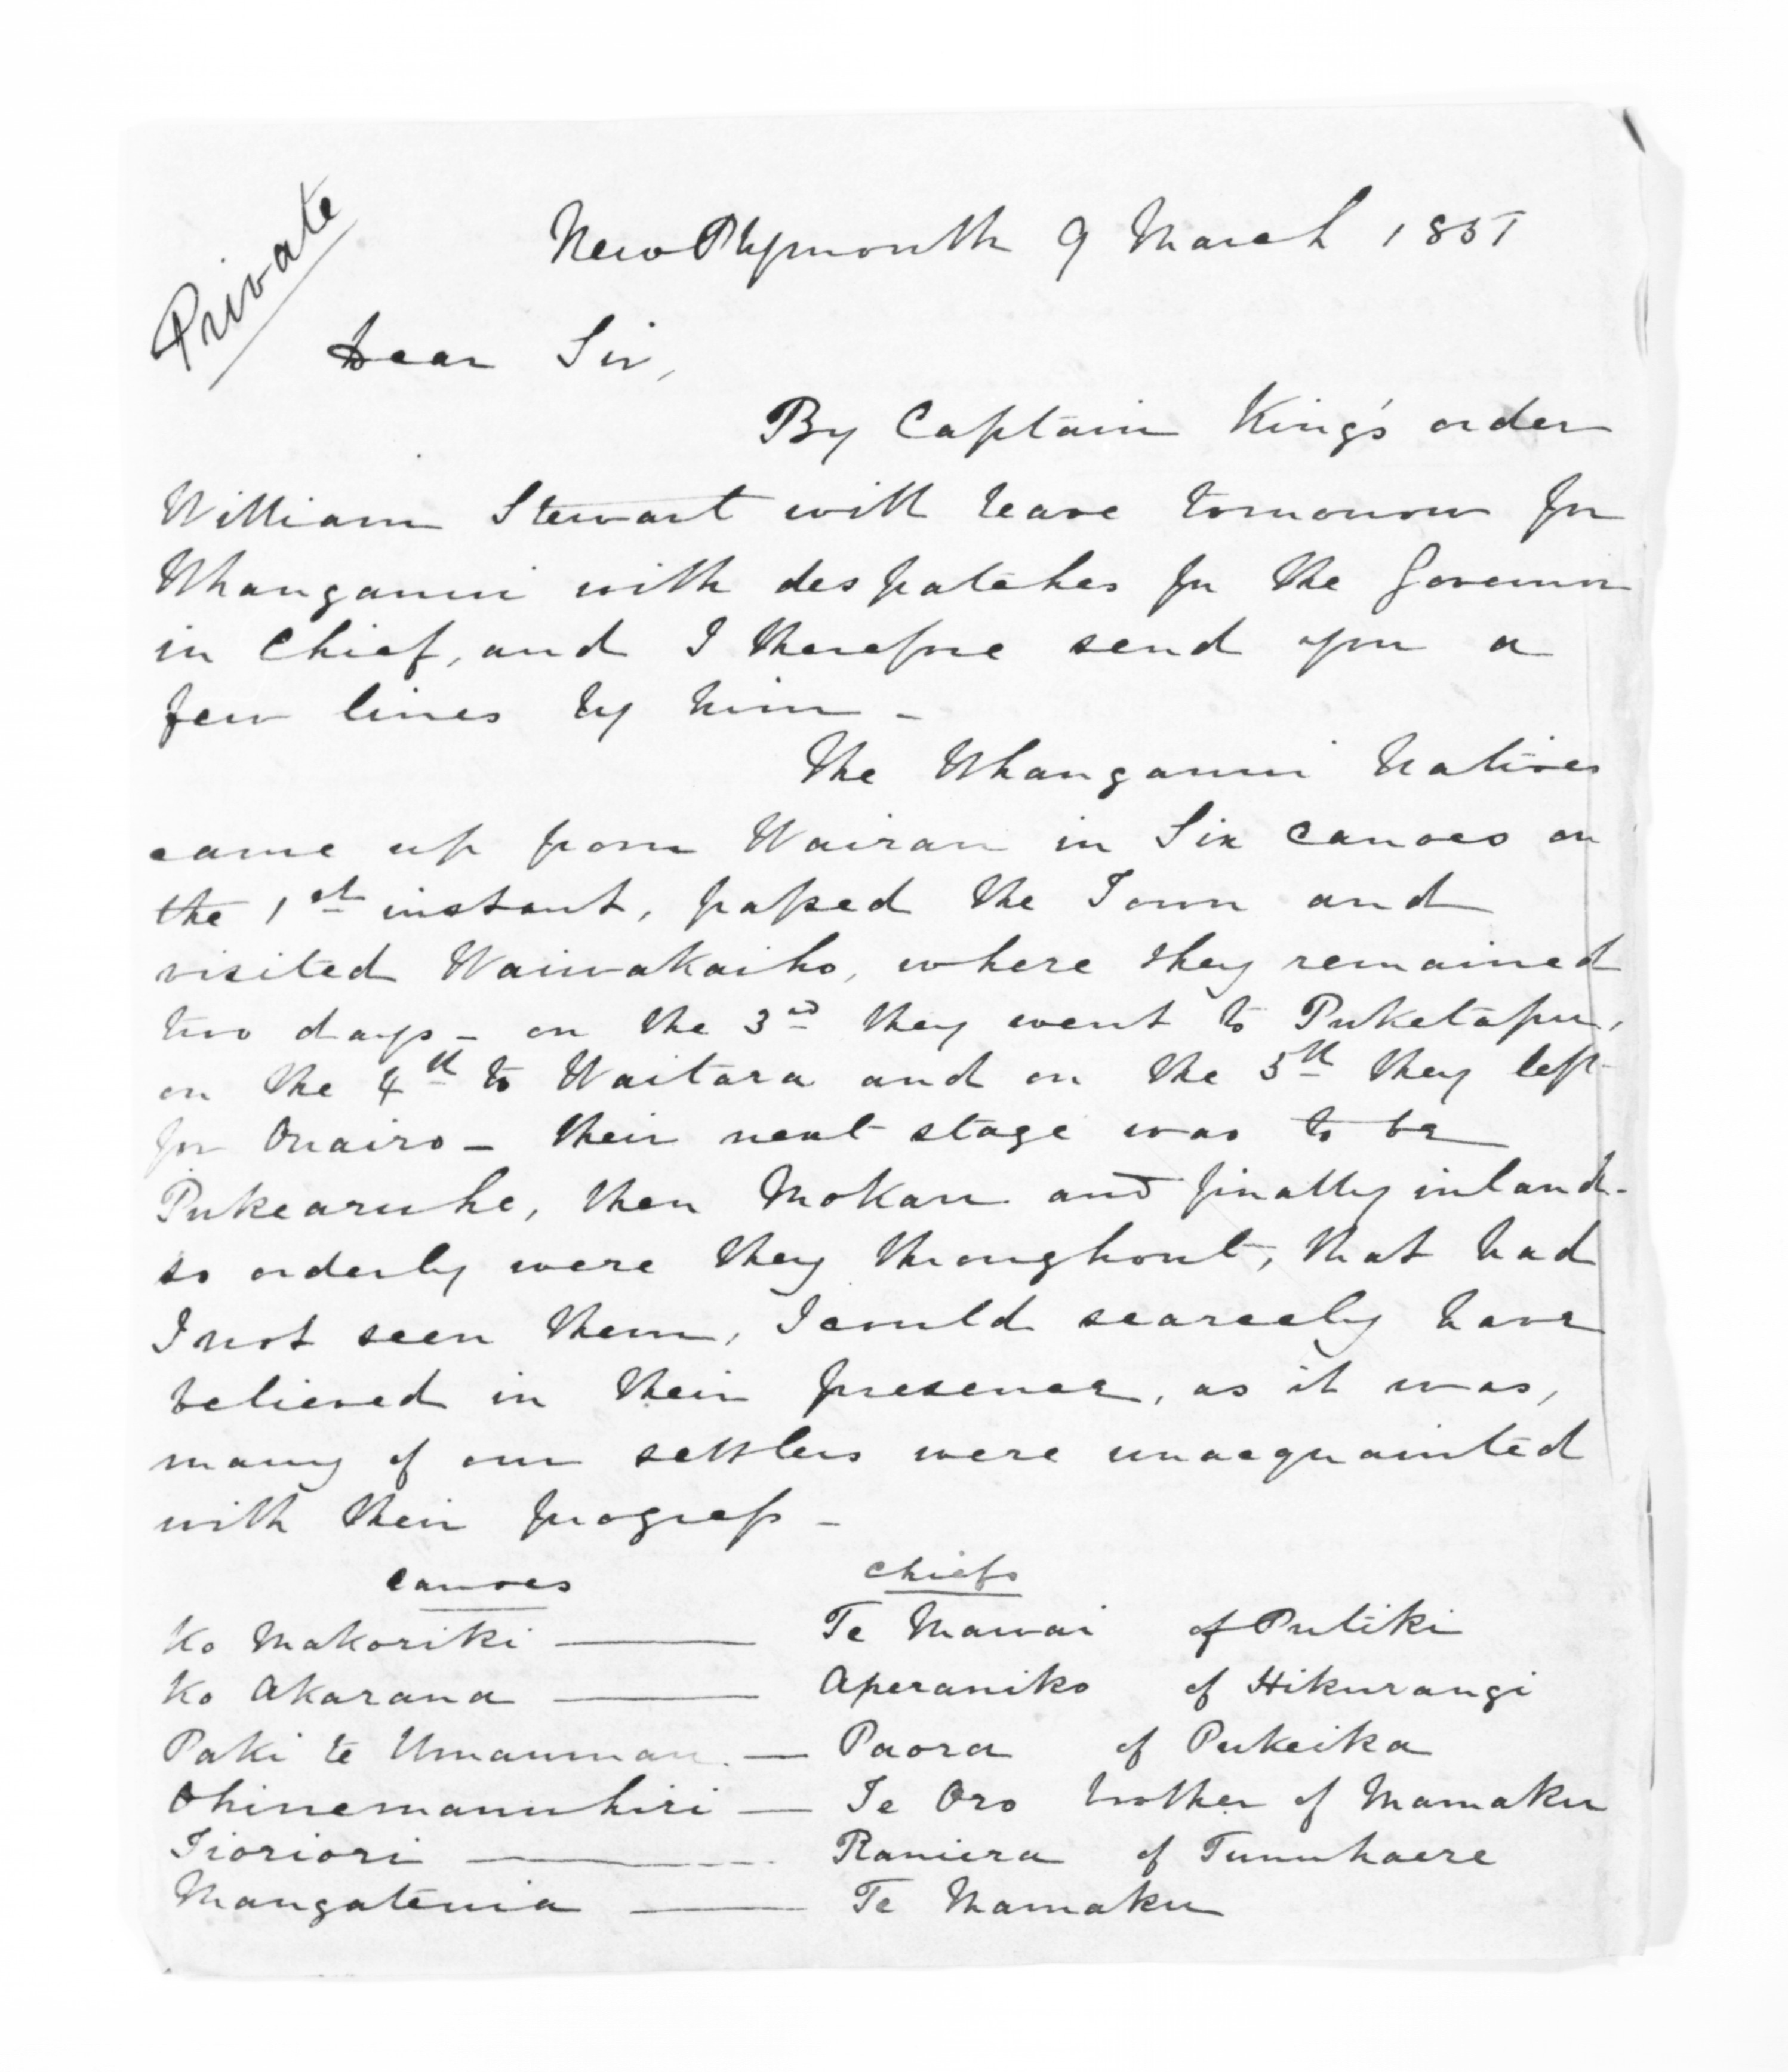 Private
New Plymouth 9 March 1851
Dear Sir,
By Captain King's order
William Stewart will leave tomorrow for
Whanganui with despatches for the Governor
in Chief, and I therefore send you a
few lines by him -
The Whanganui Natives
came up from Wairau in Six Canoes on
the 1st instant, passed the Town and
visited Waiwakaiho, where they remained
two days - on the 3rd they went to Puketapu,
on the 4th to Waitara and on the 5th they left
for Onairo - their next stage was to be
Pukearuhe, then Mokau and finally inland -
so orderly were they throughout, that had
I not seen them, I could scarcely have
believed in their presence, as it was,
many of our settlers were unacquainted
with their progress -
Canoes Chiefs
Ko Makoriki — Te Mawai of Putiki
Ko Akarana — Aperaniko of Hikurangi
Paki te Umaumau — Paora of Pukeika
Ohinemanuhiri — Te Oro brother of Mamaku
Tioriori — Raniera of Tunuhaere
Mangatenia — Te Mamaku